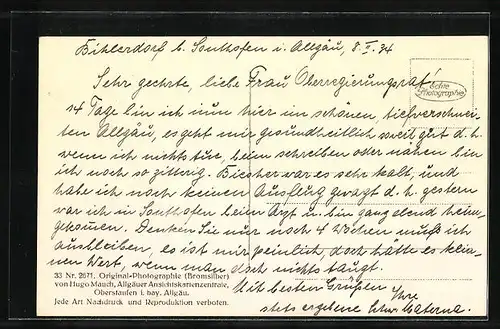 Bihlerdorf b. Sonthofen i. Allgäu, 8. II. 34
Echte
Photographie
Sehr geehrte, liebe Frau Oberregierungsrat!
14 Tage bin ich nun hier im schönen, tiefverschnei-
ten Allgäu, es geht mir gesundheitlich soweit gut d. h.
wenn ich nichts tue, beim schreiben oder nähen bin
ich noch so zittrig. Bisher war es sehr kalt, und
habe ich noch keinen Ausflug gewagt d. h. gestern
war ich in Sonthofen beim Arzt u. bin ganz elend heim-
gekommen. Denken Sie nur noch 4 Wochen muß ich
ausbleiben, es ist mir peinlich, doch hätte es kei-
nen Wert, wenn man doch nichts taugt.
33 Nr. 2671. Original-Photographie (Bromsilber)
von Hugo Mauch, Allgäuer Ansichtskartenzentrale,
Oberstaufen i. bay. Allgäu.
Jede Art Nachdruck und Reproduktion verboten.
Mit besten Grüßen
Ihre
stets ergebene Schw. Materna.